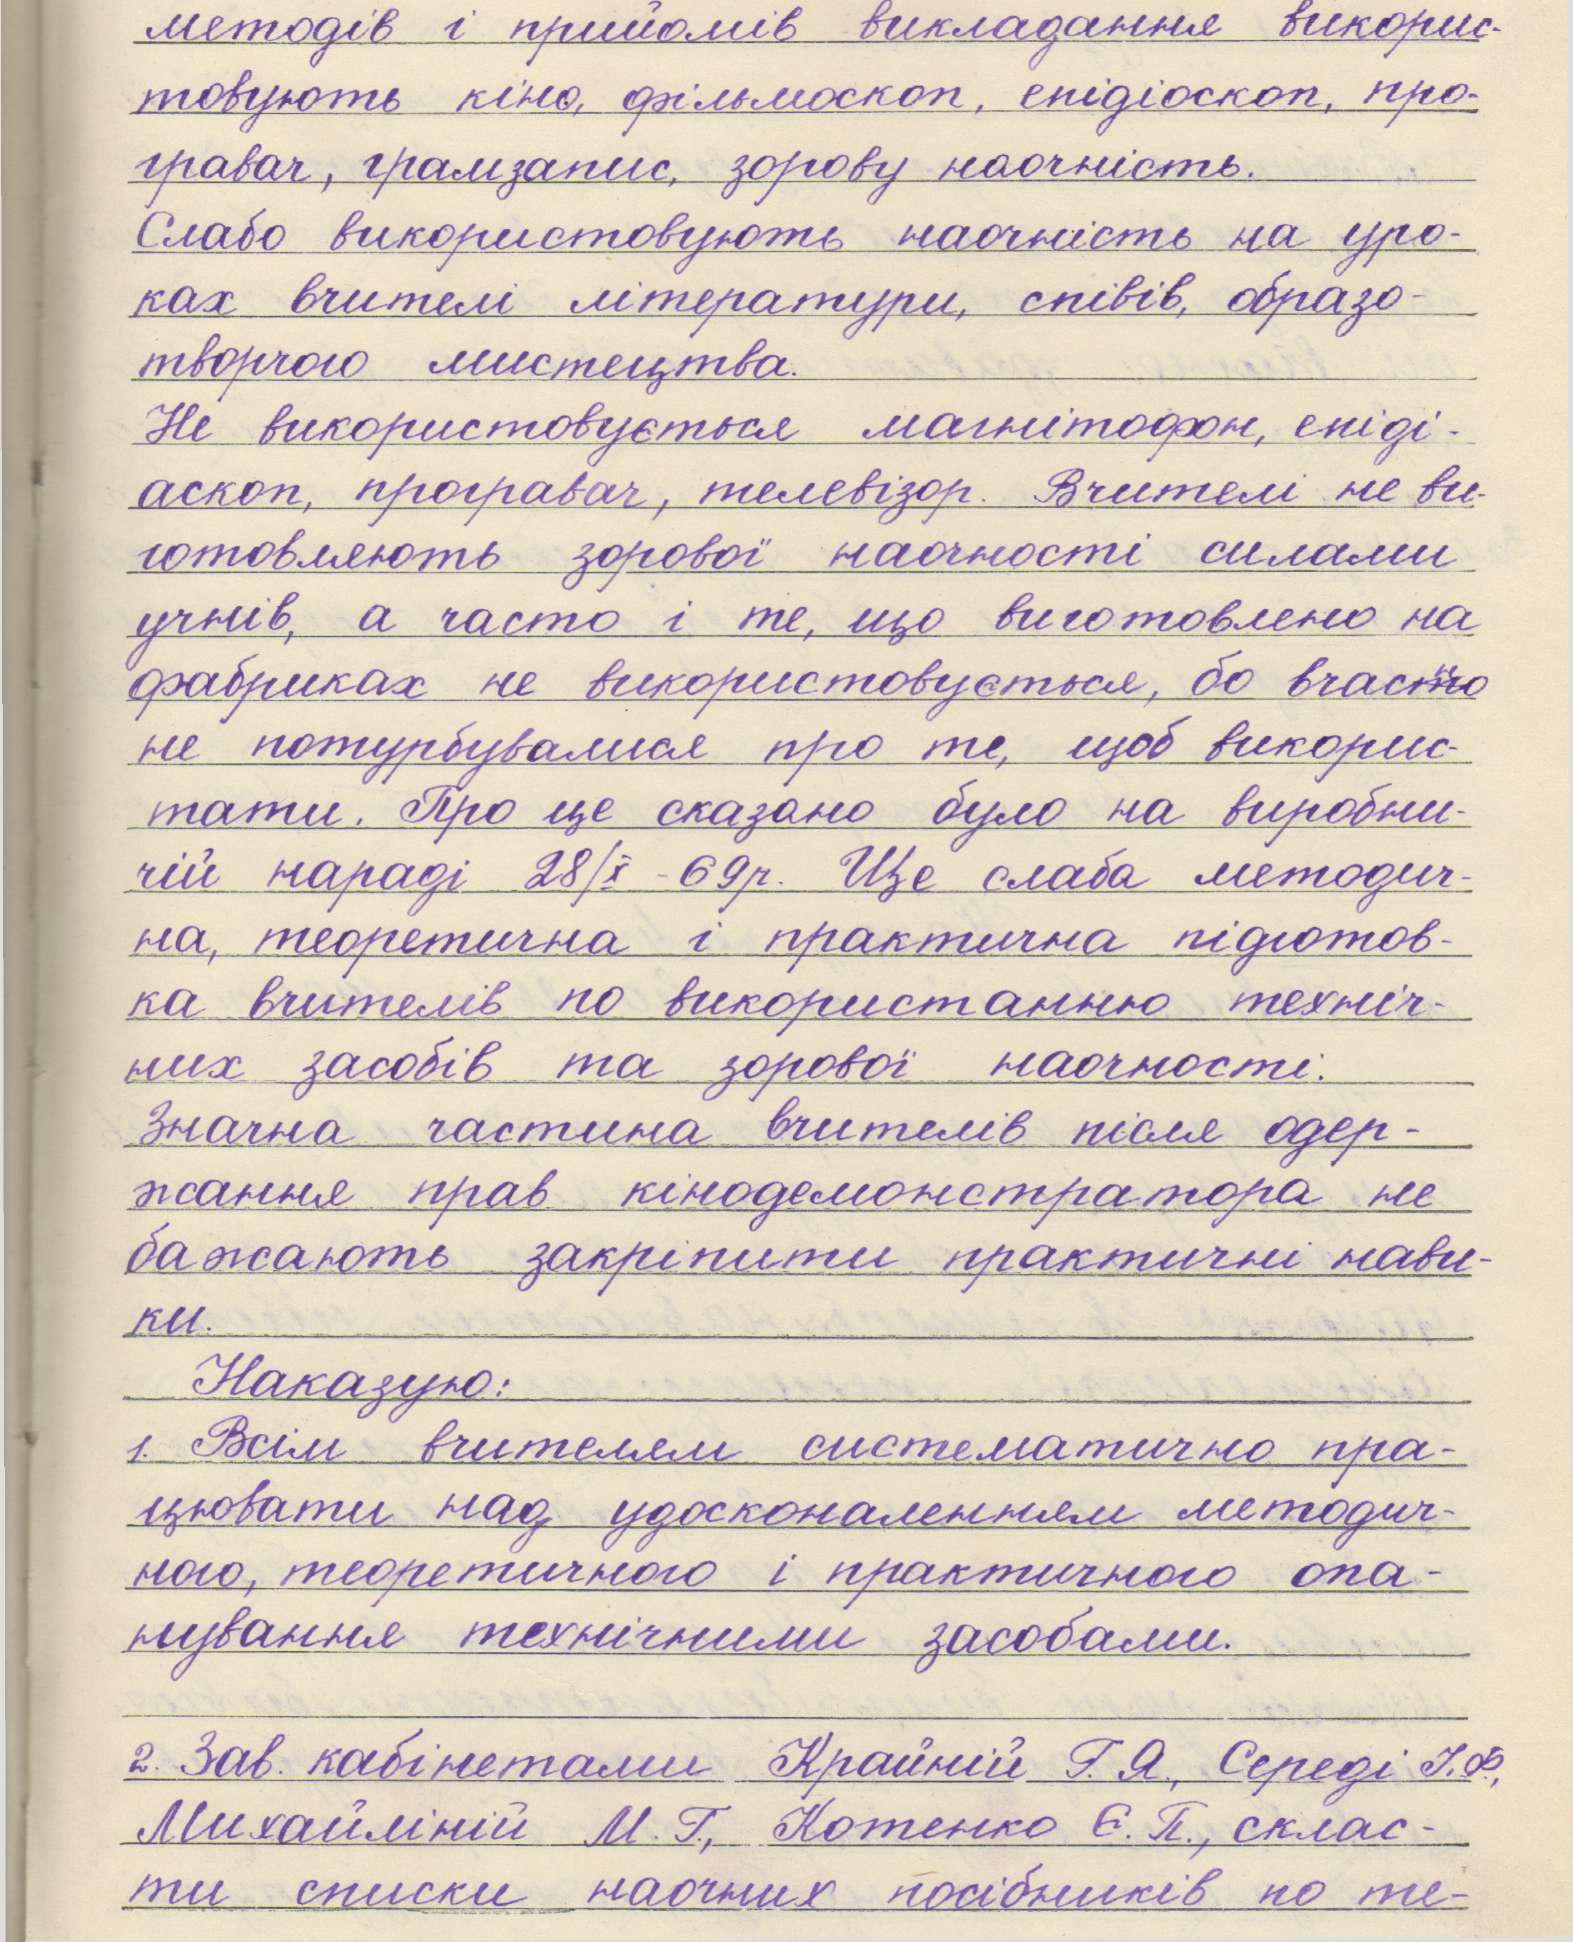 методів і прийомів викладання викорис-
товують кіно, фільмоскоп, епідіоскоп, про-
гравач, грамзапис, зорову наочність.
Слабо використовують наочність на уро-
ках вчителі літератури, співів, образо-
творчого мистецтва.
Не використовується магнітофон, епіді-
аскоп, програвач, телевізор. Вчителі не ви-
готовляють зорової наочності силами
учнів, а часто і те, що виготовлено на
фабриках не використовується, бо вчасно
не потурбувалися про те, щоб викорис-
тати. Про це сказано було на виробни-
чій нараді 28/X - 69р. Ще слаба методич-
на, теоретична і практична підготов-
ка вчителів по використанню техніч-
них засобів та зорової наочності.
Значна частина вчителів після одер-
жання прав кінодемонстратора не
бажають закріпити практичні нави-
ки.
Наказую:
1. Всім вчителям систематично пра-
цювати над удосконаленням методич-
ного, теоретичного і практичного опа-
нування технічними засобами.
2. Зав. кабінетами Крайній Г. Я., Середі І. Ф.,
Михайліній М. Г., Котенко Є. П., склас-
ти списки наочних посібників по те-